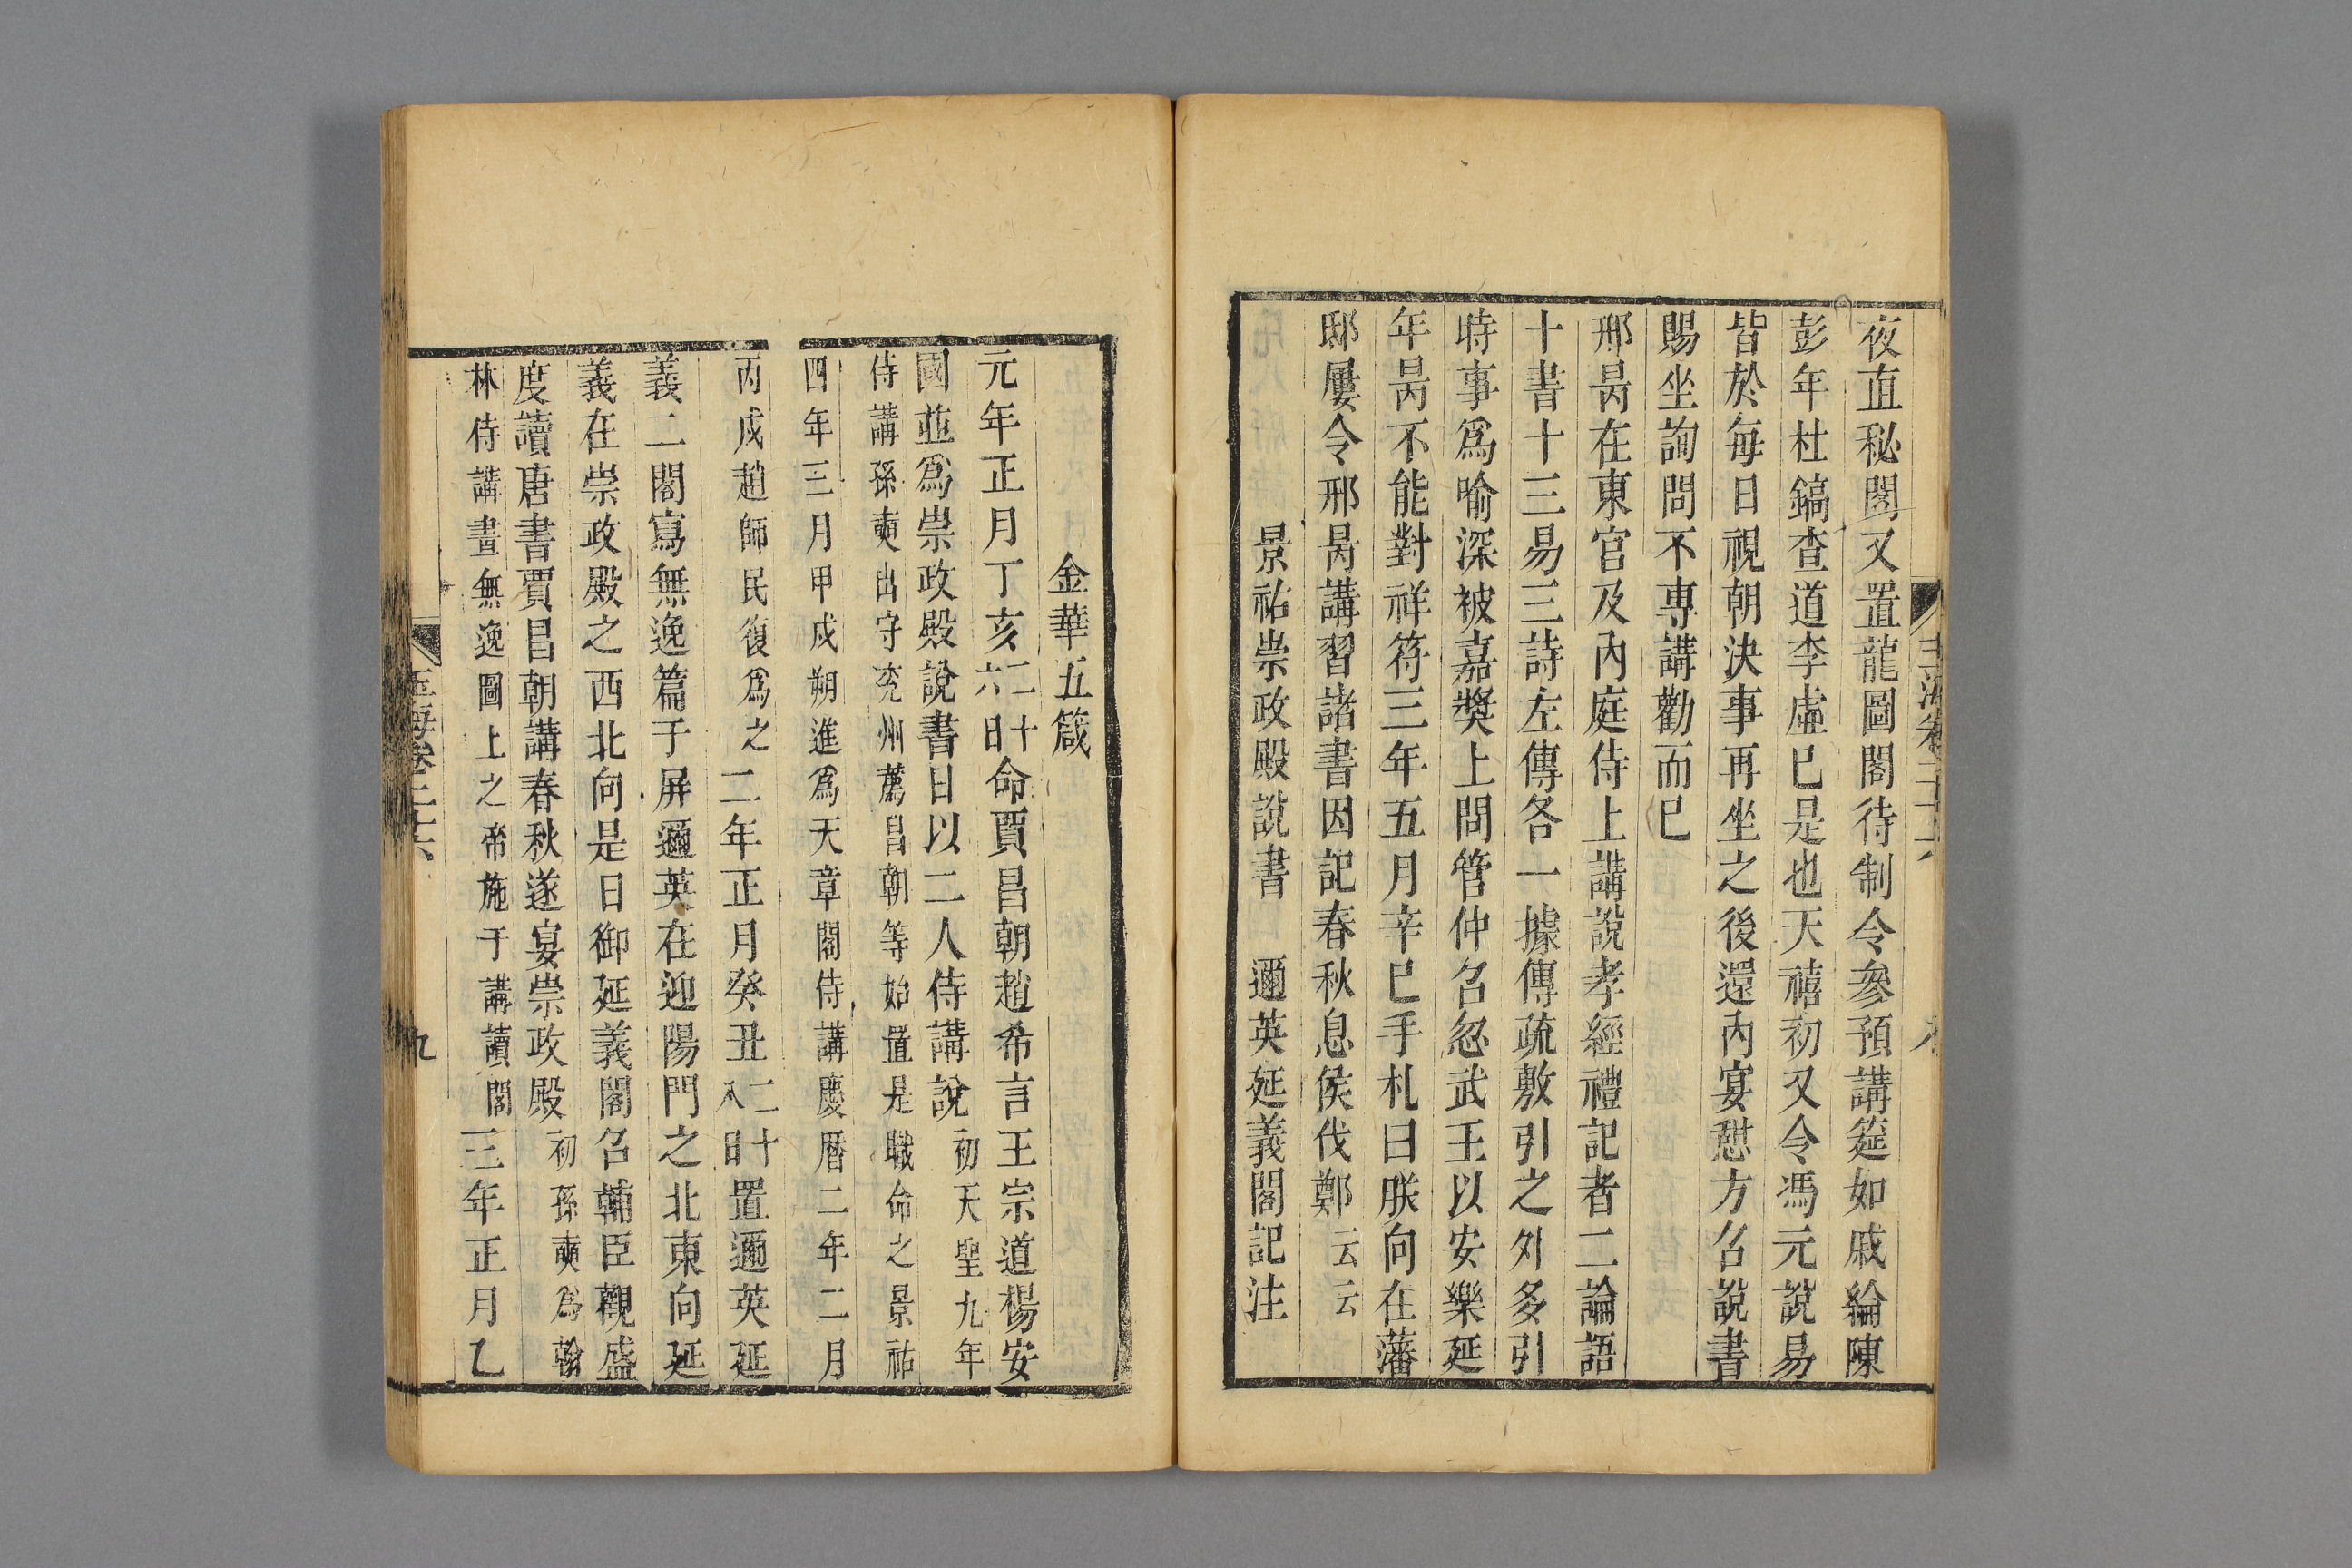 夜直秘閣又置龍圖閣待制令參預講筵如戚綸陳
彭年杜鎬查道李虛已是也天禧初又令馮元說易
皆於每日視朝決事再坐之後還內宴憇方召說書
賜坐詢問不專講勸而已
邢昺在東宮及內庭侍上講說孝經禮記者二論語
十書十三易三詩左傳各一據傳疏敷引之外多引
時事爲喻深被嘉奬上問管仲召忽武王以安樂延
年昺不能對祥符三年五月辛巳手札曰朕向在藩
邸屢令邢昺講習諸書因記春秋息侯伐鄭云云
景祐崇政殿說書 邇英延義閣記注
金華五箴
元年正月丁亥二十六日命賈昌朝趙希言王宗道楊安
國並爲崇政殿說書日以二人侍講說初天聖九年
侍講孫奭出守兖州薦昌朝等始置是職命之景祐
四年三月甲戌朔進爲天章閣侍講慶曆二年二月
丙戌趙師民復爲之二年正月癸丑二十八日置邇英延
義二閣寫無逸篇于屏邇英在迎陽門之北東向延
義在崇政殿之西北向是日御延義閣召輔臣觀盛
度讀唐書賈昌朝講春秋遂宴崇政殿初孫奭爲翰
林侍講畫無逸圖上之帝施于講讀閣三年正月乙
玉海卷二十六
九